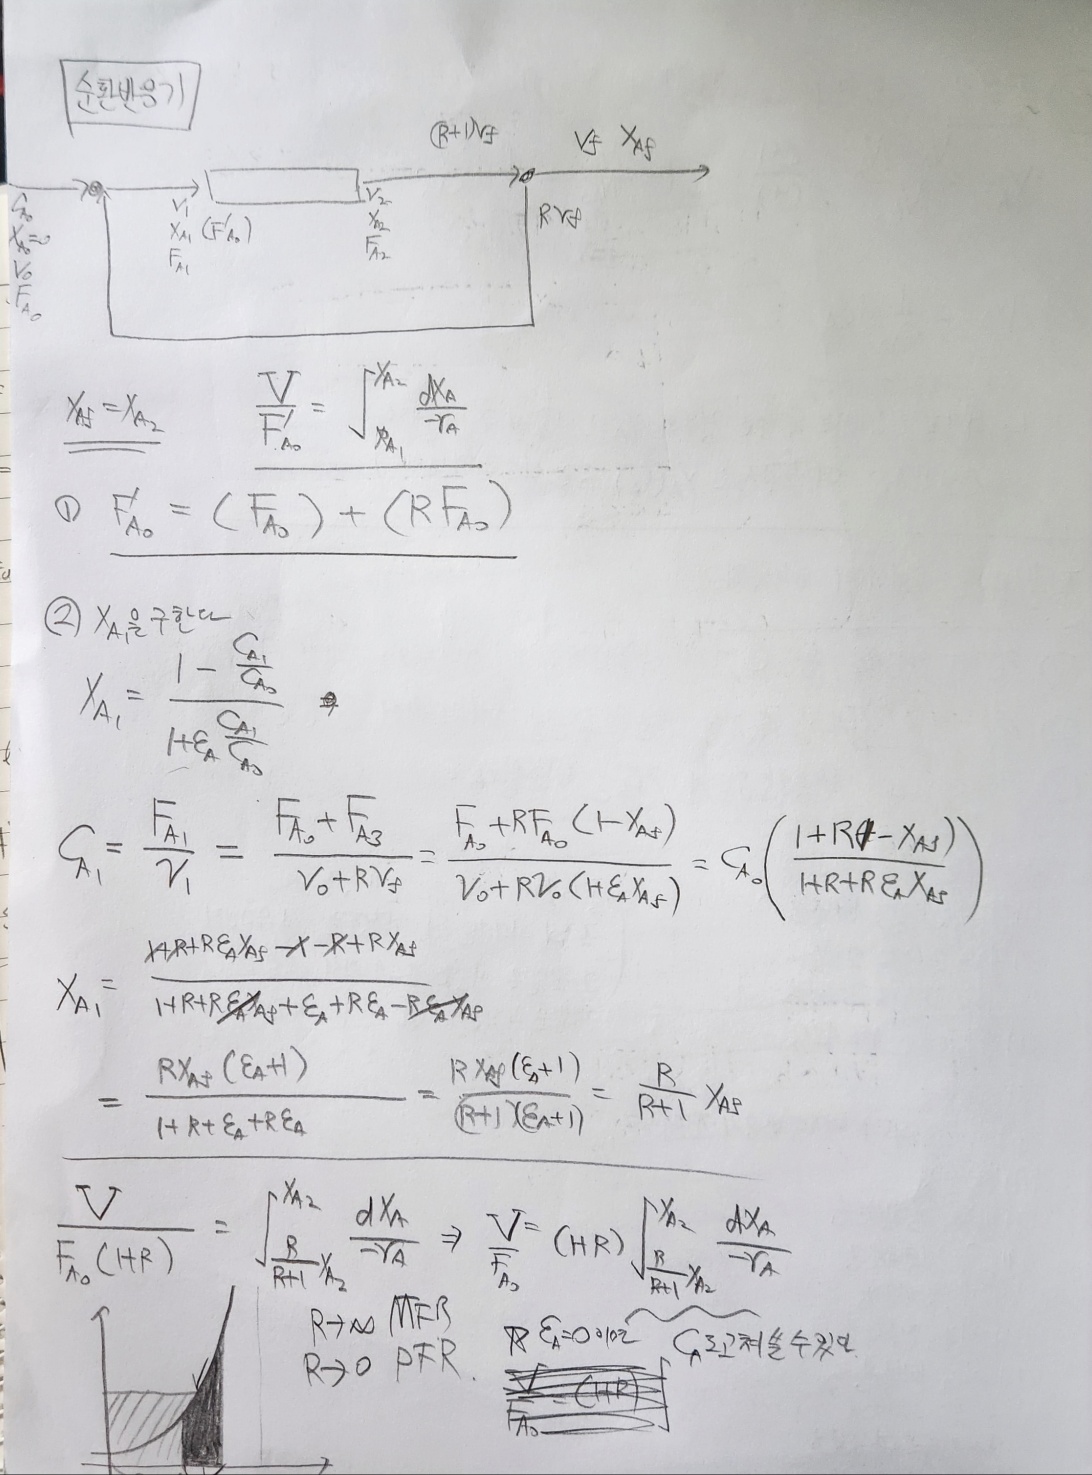 순환반응기
(R+1)Vf
Vf X_Af
C_A0
X_A0=0
V0
F_A0
V1
X_A1 (F'_A0)
F_A1
V2
X_A2
F_A2
RVf
X_Af = X_A2
V/F'_A0 = ∫_{X_A1}^{X_A2} dX_A/-r_A
① F'_A0 = (F_A0) + (RF_A0)
② X_A1을 구한다
X_A1 = (1 - C_A1/C_A0)/(1+ε_A C_A1/C_A0) ⇒
C_A1 = F_A1/V1 = (F_A0+F_A3)/(V0+RVf) = (F_A0+RF_A0(1-X_Af))/(V0+RV0(1+ε_A X_Af)) = C_A0((1+R(1-X_Af))/(1+R+Rε_A X_Af))
X_A1 = (1+R+Rε_A X_Af-1-R+RX_Af)/(1+R+Rε_A X_Af+ε_A+Rε_A-Rε_A X_Af)
= RX_Af(ε_A+1)/(1+R+ε_A+Rε_A) = RX_Af(ε_A+1)/((R+1)(ε_A+1)) = R/(R+1) X_Af
V/(F_A0(1+R)) = ∫_{R/(R+1) X_A2}^{X_A2} dX_A/-r_A ⇒ V/F_A0 = (1+R)∫_{R/(R+1) X_A2}^{X_A2} dX_A/-r_A
R→∞ MFR
R→0 PFR.
ε_A=0이면 C_A로 고쳐쓸 수 있다
V/F_A0 = (1+R)